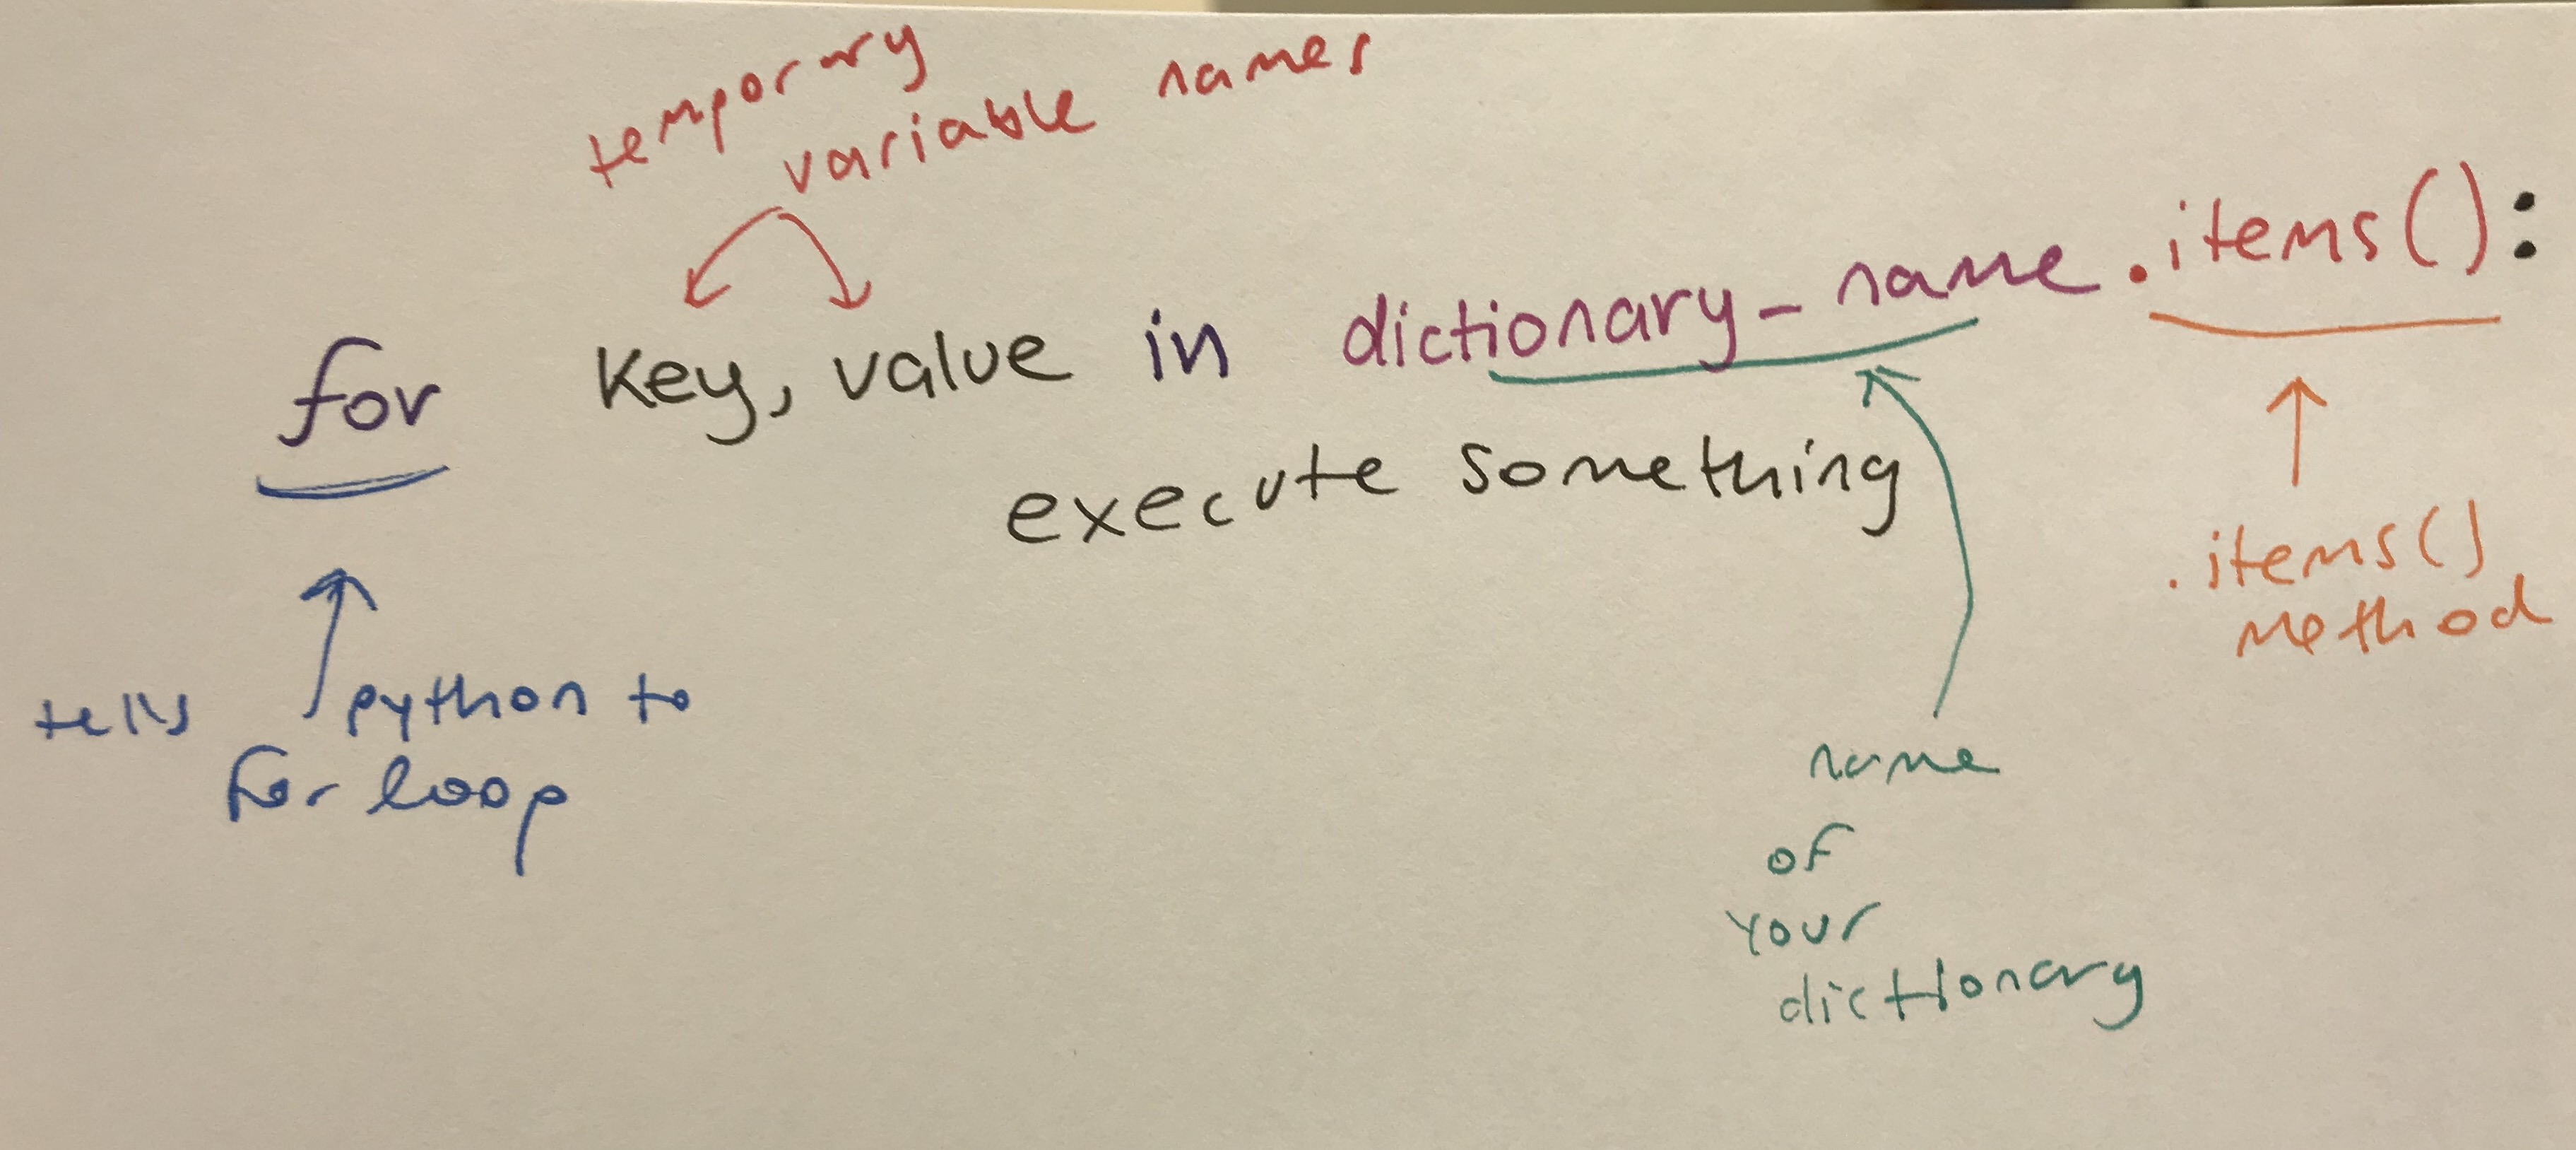 temporary
variable names
for key, value in dictionary_name.items():
execute something
.items()
method
tells python to
for loop
name
of
your
dictionary